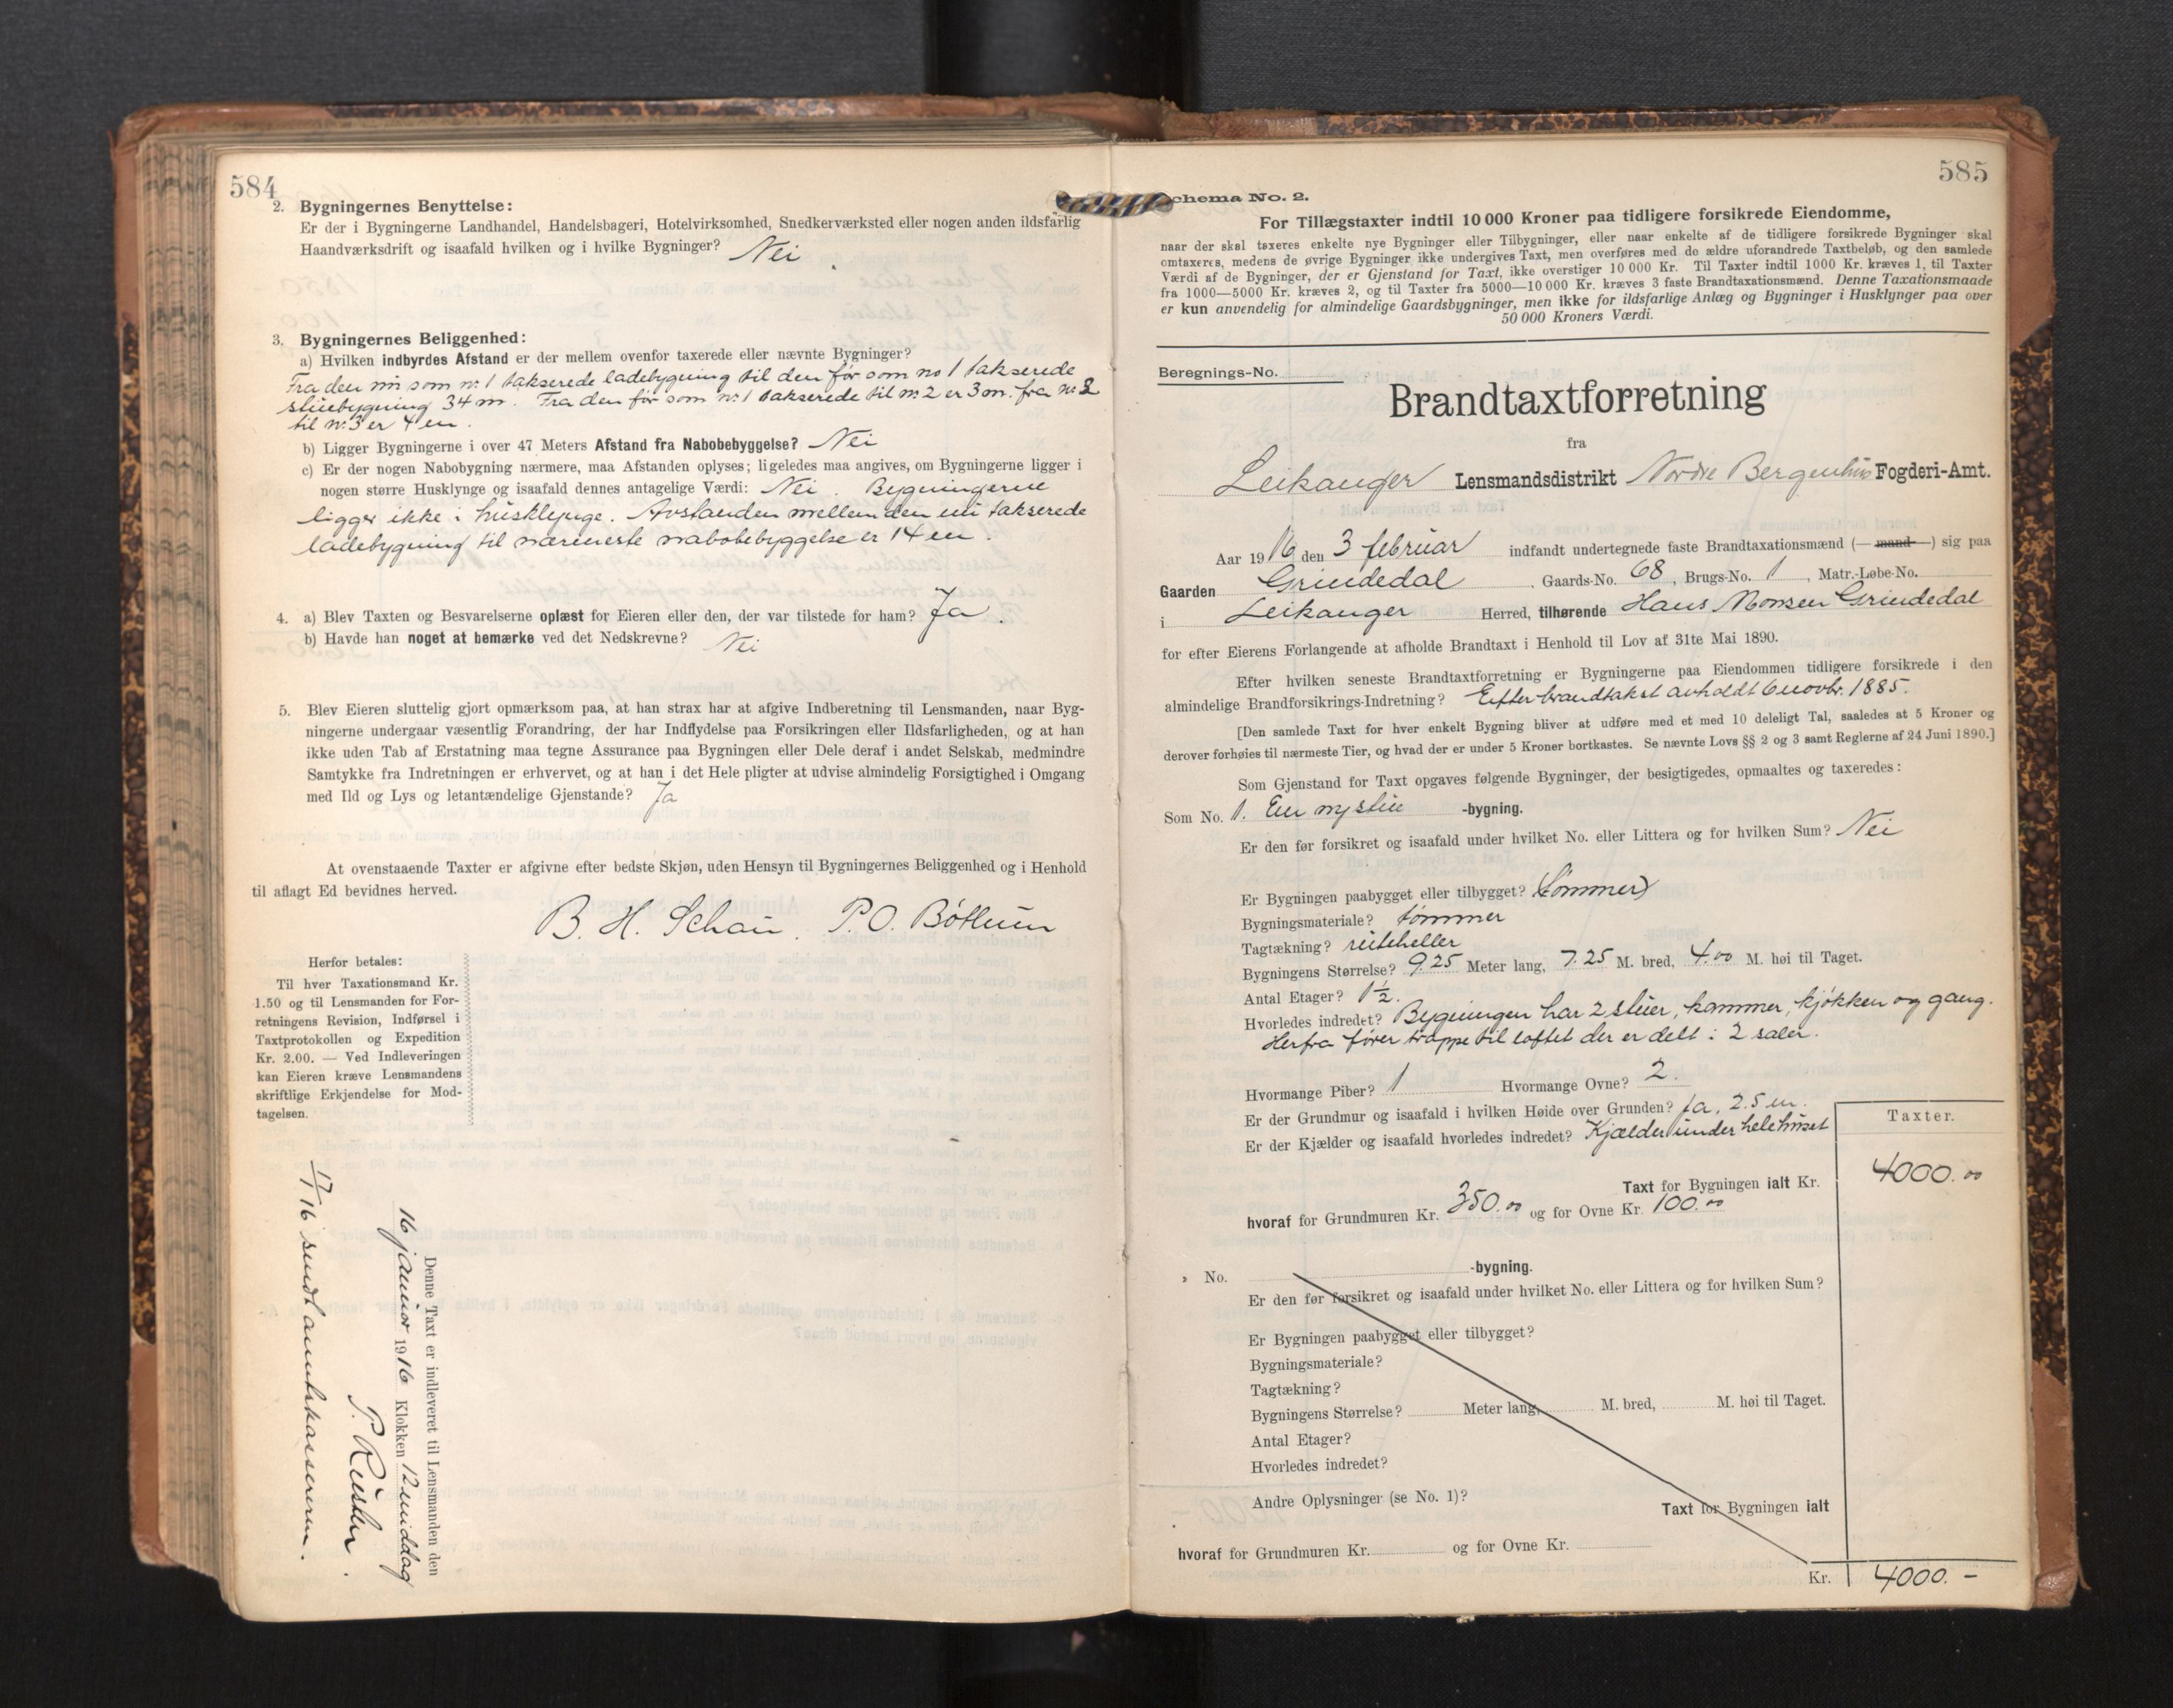 584
2. Bygningernes Benyttelse:
Er der i Bygningerne Landhandel, Handelsbageri, Hotelvirksomhed, Snedkerværksted eller nogen anden ildsfarlig
Haandværksdrift og isaafald hvilken og i hvilke Bygninger? Nei
3. Bygningernes Beliggenhed:
a) Hvilken indbyrdes Afstand er der mellem ovenfor taxerede eller nævnte Bygninger?
Fra den nu som nr. 1 takserede ladebygning til den før som no 1 takserede
stuebygning 34 m. Fra den før som nr. 1 takserede til nr. 2 er 3 m. fra nr. 2
til nr. 3 er 4 m.
b) Ligger Bygningerne i over 47 Meters Afstand fra Nabobebyggelse? Nei
c) Er der nogen Nabobygning nærmere, maa Afstanden oplyses; ligeledes maa angives, om Bygningerne ligger i
nogen større Husklynge og isaafald dennes antagelige Værdi: Nei. Bygningerne
ligger ikke i husklynge. Avstanden mellem den nu takserede
ladebygning til nærmeste nabobebyggelse er 14 m.
4. a) Blev Taxten og Besvarelserne oplæst for Eieren eller den, der var tilstede for ham? Ja.
b) Havde han noget at bemærke ved det Nedskrevne? Nei
5. Blev Eieren sluttelig gjort opmærksom paa, at han strax har at afgive Indberetning til Lensmanden, naar Byg-
ningerne undergaar væsentlig Forandring, der har Indflydelse paa Forsikringen eller Ildsfarligheden, og at han
ikke uden Tab af Erstatning maa tegne Assurance paa Bygningen eller Dele deraf i andet Selskab, medmindre
Samtykke fra Indretningen er erhvervet, og at han i det Hele pligter at udvise almindelig Forsigtighed i Omgang
med Ild og Lys og letantændelige Gjenstande? Ja
At ovenstaaende Taxter er afgivne efter bedste Skjøn, uden Hensyn til Bygningernes Beliggenhed og i Henhold
til aflagt Ed bevidnes herved.
B. H. Schau. P. O. Bøthun
Herfor betales:
Til hver Taxationsmand Kr.
1.50 og til Lensmanden for For-
retningens Revision, Indførsel i
Taxtprotokollen og Expedition
Kr. 2.00. — Ved Indleveringen
kan Eieren kræve Lensmandens
skriftlige Erkjendelse for Mod-
tagelsen.
Denne Taxt er indleveret til Lensmanden den
16 januar 1916 Klokken 12 middag
17/1 16 sendt amtskassereren.
585
Schema No. 2.
For Tillægstaxter indtil 10 000 Kroner paa tidligere forsikrede Eiendomme,
naar der skal taxeres enkelte nye Bygninger eller Tilbygninger, eller naar enkelte af de tidligere forsikrede Bygninger skal
omtaxeres, medens de øvrige Bygninger ikke undergives Taxt, men overføres med de ældre uforandrede Taxtbeløb, og den samlede
Værdi af de Bygninger, der er Gjenstand for Taxt, ikke overstiger 10 000 Kr. Til Taxter indtil 1000 Kr. kræves 1, til Taxter
fra 1000—5000 Kr. kræves 2, og til Taxter fra 5000—10 000 Kr. kræves 3 faste Brandtaxationsmænd. Denne Taxationsmaade
er kun anvendelig for almindelige Gaardsbygninger, men ikke for ildsfarlige Anlæg og Bygninger i Husklynger paa over
50 000 Kroners Værdi.
Beregnings-No.
Brandtaxtforretning
fra
Leikanger Lensmandsdistrikt Nordre Bergenhus Fogderi-Amt.
Aar 1916 den 3 februar indfandt undertegnede faste Brandtaxationsmænd (— mand —) sig paa
Gaarden Grindedal. Gaards-No. 68, Brugs-No. 1, Matr.-Løbe-No.
i Leikanger Herred, tilhørende Hans Monsen Grindedal
for efter Eierens Forlangende at afholde Brandtaxt i Henhold til Lov af 31te Mai 1890.
Efter hvilken seneste Brandtaxtforretning er Bygningerne paa Eiendommen tidligere forsikrede i den
almindelige Brandforsikrings-Indretning? Efter brandtakst avholdt 6 novbr. 1885.
[Den samlede Taxt for hver enkelt Bygning bliver at udføre med et med 10 deleligt Tal, saaledes at 5 Kroner og
derover forhøies til nærmeste Tier, og hvad der er under 5 Kroner bortkastes. Se nævnte Lovs §§ 2 og 3 samt Reglerne af 24 Juni 1890.]
Som Gjenstand for Taxt opgaves følgende Bygninger, der besigtigedes, opmaaltes og taxeredes:
Som No. 1. En ny stue -bygning.
Er den før forsikret og isaafald under hvilket No. eller Littera og for hvilken Sum? Nei
Er Bygningen paabygget eller tilbygget? (tømmer)
Bygningsmateriale? tømmer
Tagtækning? ruteheller
Bygningens Størrelse? 9.25 Meter lang, 7.25 M. bred, 4.00 M. høi til Taget.
Antal Etager? 1½.
Hvorledes indredet? Bygningen har 2 stuer, kammer, kjøkken og gang.
Herfra fører trappe til loftet der er delt i 2 saler.
Hvormange Piber? 1 Hvormange Ovne? 2.
Er der Grundmur og isaafald i hvilken Høide over Grunden? Ja, 2.5 m.
Er der Kjælder og isaafald hvorledes indredet? Kjælder under hele huset
Taxter.
Taxt for Bygningen ialt Kr. 4000.00
hvoraf for Grundmuren Kr. 350.00 og for Ovne Kr. 100.00
" No. -bygning.
Er den før forsikret og isaafald under hvilket No. eller Littera og for hvilken Sum?
Er Bygningen paabygget eller tilbygget?
Bygningsmateriale?
Tagtækning?
Bygningens Størrelse? Meter lang, M. bred, M. høi til Taget.
Antal Etager?
Hvorledes indredet?
Andre Oplysninger (se No. 1)?
Taxt for Bygningen ialt
hvoraf for Grundmuren Kr. og for Ovne Kr.
Kr. 4000.-